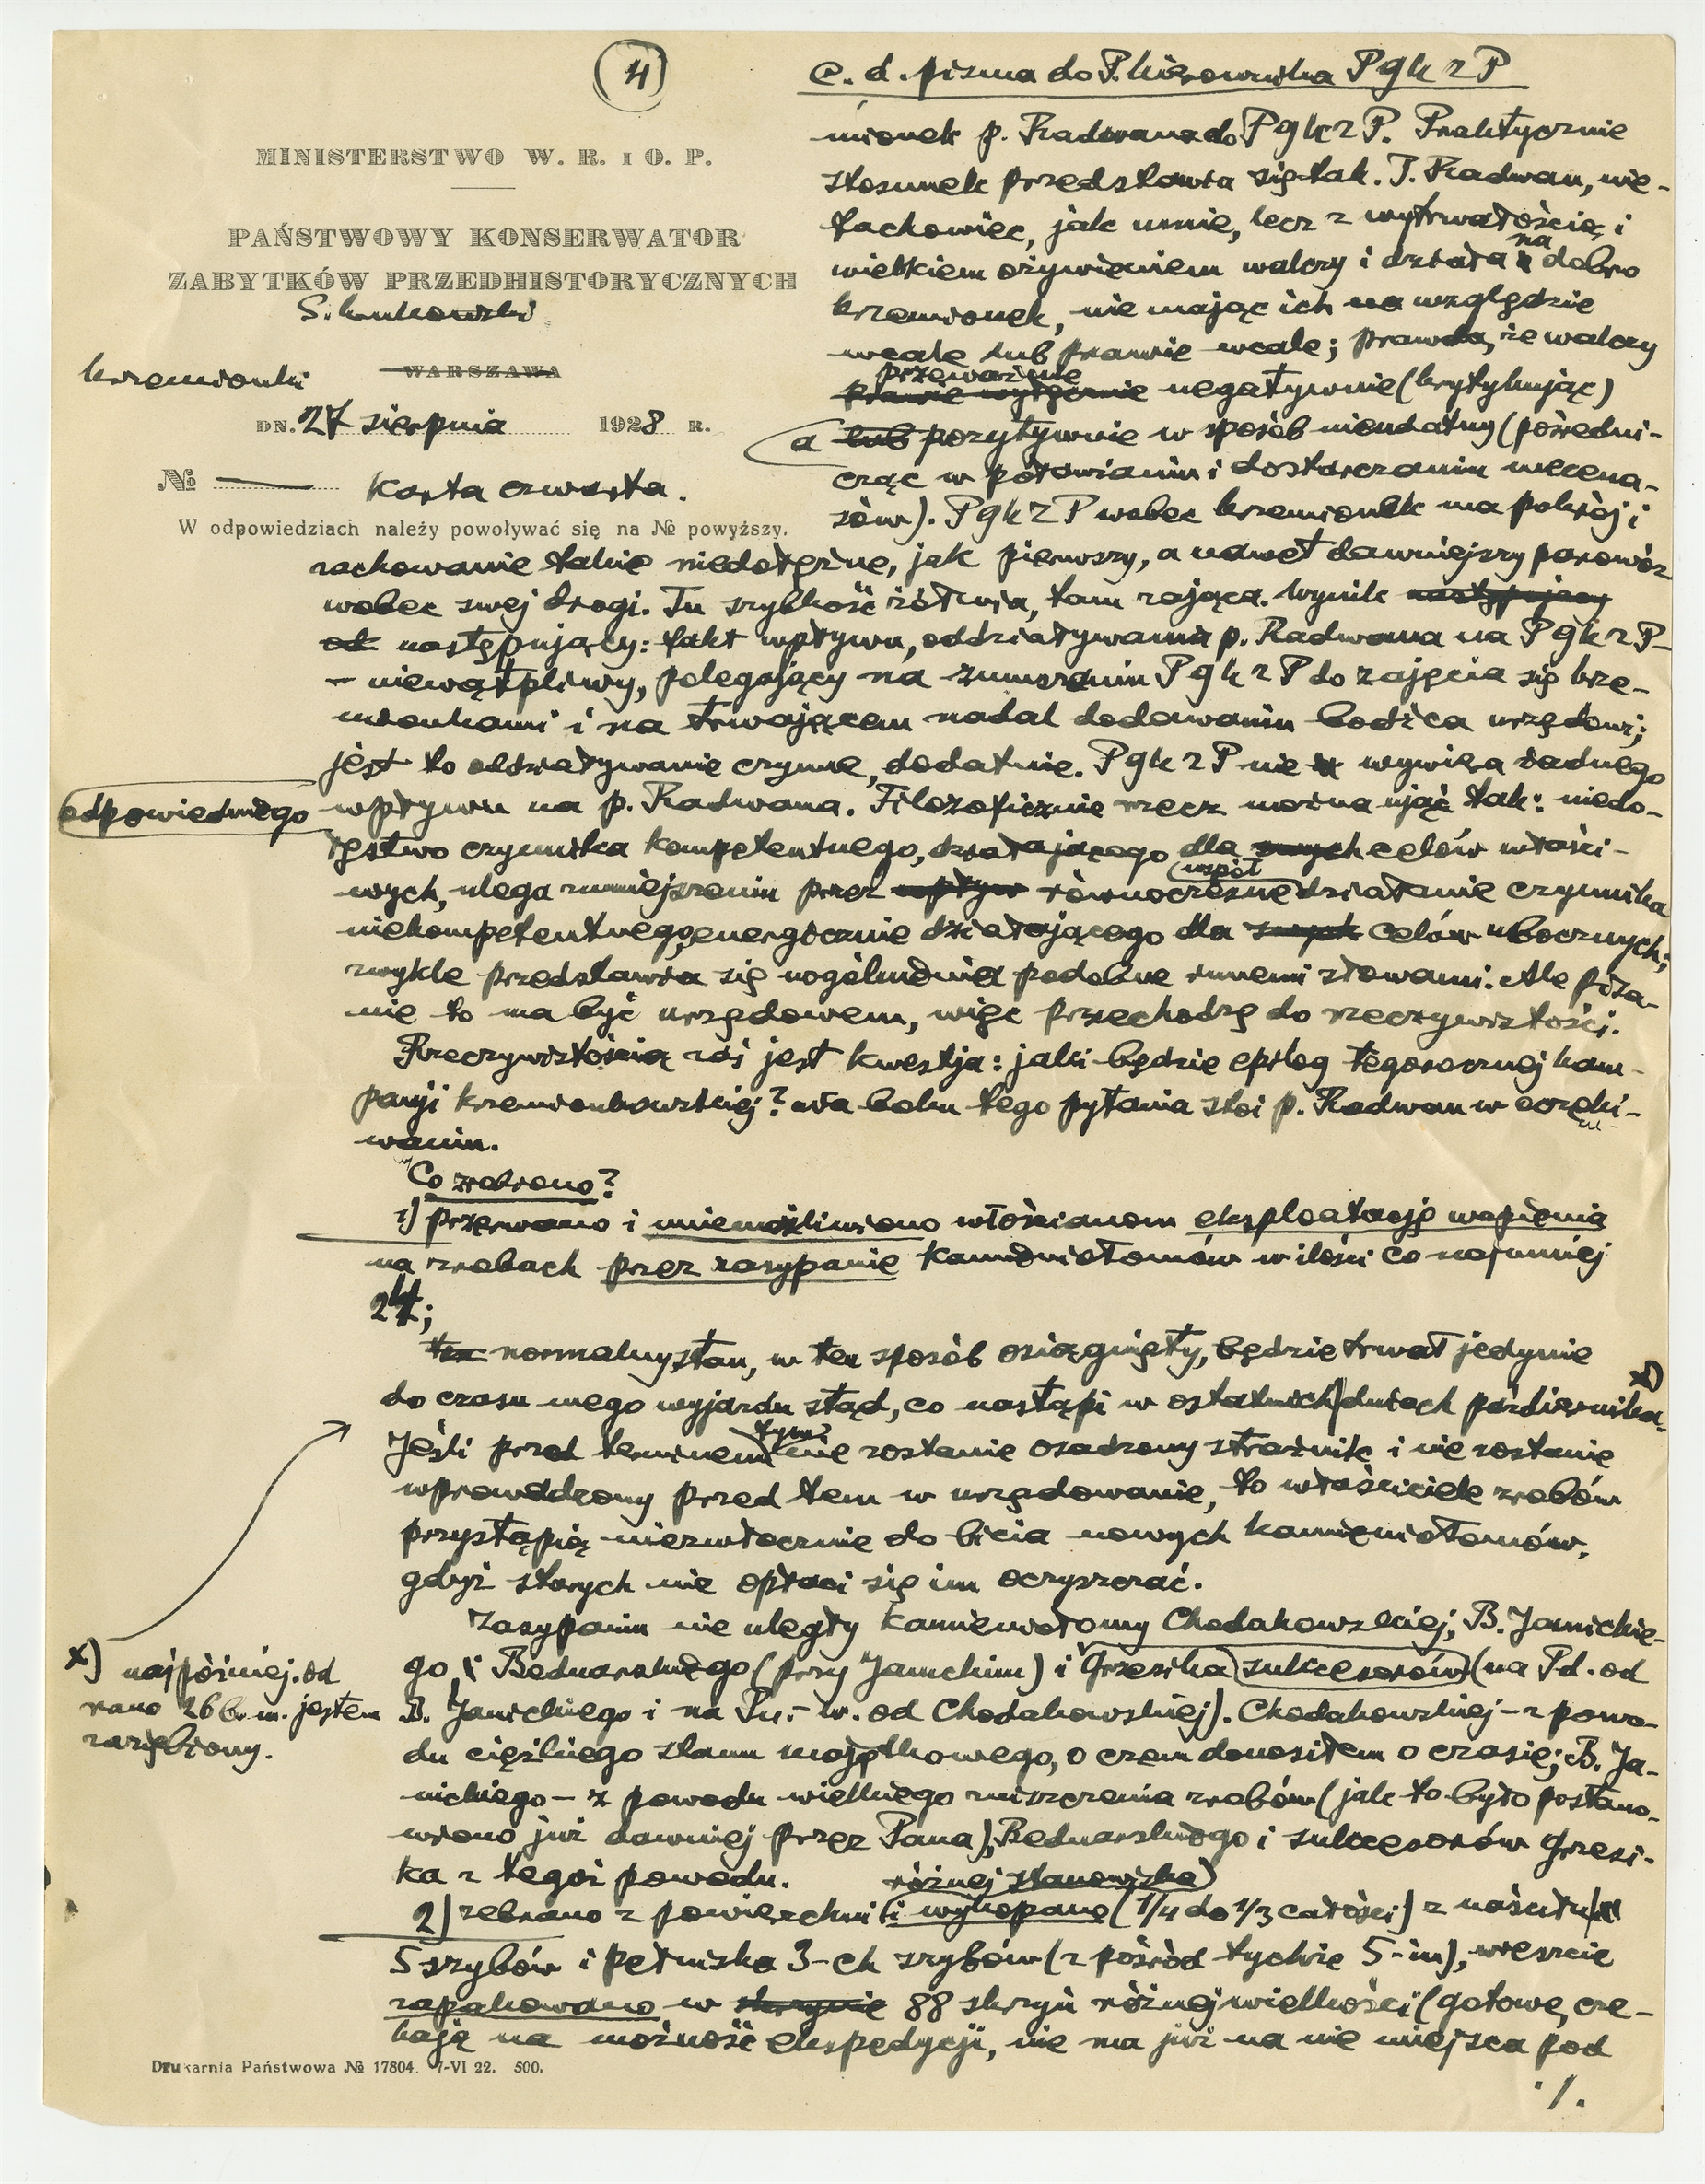 4
c. d. pisma do P. Kierownika PgKZP
MINISTERSTWO W. R. i O. P.
PAŃSTWOWY KONSERWATOR
ZABYTKÓW PRZEDHISTORYCZNYCH
S. Krukowski
Krzemionki
WARSZAWA
DN. 27 sierpnia 1928 R.
№ — karta czwarta.
W odpowiedziach należy powoływać się na № powyższy.
mionek p. Radwana do PgKZP. Praktycznie
stosunek przedstawia się tak. P. Radwan, nie-
fachowiec, jak umie, lecz z wytrwałością i
wielkiem ożywieniem walczy i działa na dobro
krzemionek, nie mając ich na względzie
wcale lub prawie wcale; prawda, że walczy
przeważnie
prawie wyłącznie negatywnie (krytykując)
a lub pozytywnie w sposób nieudatny (pośredni-
cząc w potowianiu i dostarczaniu mecena-
sów). PgKZP wobec krzemionek ma pokrój i
zachowanie takie niedołężne, jak pierwszy, a nawet dawniejszy parowóz
wobec swej drogi. Tu szybkość żółwia, tam zająca. Wynik następujący
od następujący: fakt wpływu, oddziaływania p. Radwana na PgKZP –
– niewątpliwy, polegający na zmuszaniu PgKZP do zajęcia się krze-
mionkami i na trwającem nadal dodawaniu bodźca urzędowi;
jest to oddziaływanie czynne, dodatnie. PgKZP nie wywiera żadnego
odpowiedniego wpływu na p. Radwana. Filozoficznie rzecz można ująć tak: niedo-
łęstwo czynnika kompetentnego, działającego dla swych celów właści-
wych, ulega zmniejszeniu przez wpływ równoczesne współdziałanie czynnika
niekompetentnego, energicznie działającego dla swych celów ubocznych;
zwykle przedstawia się uogólnienia podobne innemi słowami. Ale pisa-
nie to ma być urzędowem, więc przechodzę do rzeczywistości.
Rzeczywistością zaś jest kwestja: jaki będzie epilog tegorocznej kam-
panji krzemionkowskiej? Na boku tego pytania stoi p. Radwan w oczeki-
waniu.
Co zrobiono?
1) przerwano i uniemożliwiono włościanom eksploatację wapienia
na zrobach przez zasypanie kamieniołomów w ilości co najmniej
24;
ten normalny stan, w ten sposób osiągnięty, będzie trwał jedynie
do czasu mego wyjazdu stąd, co nastąpi w ostatnich dniach października. x)
Jeśli przed terminem tym nie zostanie osadzony strażnik i nie zostanie
wprowadzony przed tem w urzędowanie, to właściciele zrobów
przystąpią niezwłocznie do bicia nowych kamieniołomów,
gdyż starych nie opłaci się im oczyszczać.
Zasypaniu nie uległy kamieniołomy Chodakowskiej, B. Janickie-
go i Bednarskiego (przy Janickim) i Grzesika sukcesorów (na Pd. od
B. Janickiego i na Pn.-w. od Chodakowskiej). Chodakowskiej – z powo-
du ciężkiego stanu majątkowego, o czem donosiłem o czasie; B. Ja-
nickiego – z powodu wielkiego zniszczenia zrobów (jak to było postano-
wiono już dawniej przez Pana), Bednarskiego i sukcesorów Grzesi-
ka z tegoż powodu.
x) najpóźniej. od
rano 26 b. m. jestem
zaziębiony.
różnej stanowiska
2) zebrano z powierzchni i wykopano (1/4 do 1/3 całości) z naściółu
5 szybów i pełniska 3-ch szybów (z pośród tychże 5-iu), wreszcie
zapakowano w skrzynie 88 skrzyń różnej wielkości (gotowe, cze-
kają na możność ekspedycji, nie ma już na nie miejsca pod
./.
Drukarnia Państwowa № 17804. 7-VI 22. 500.